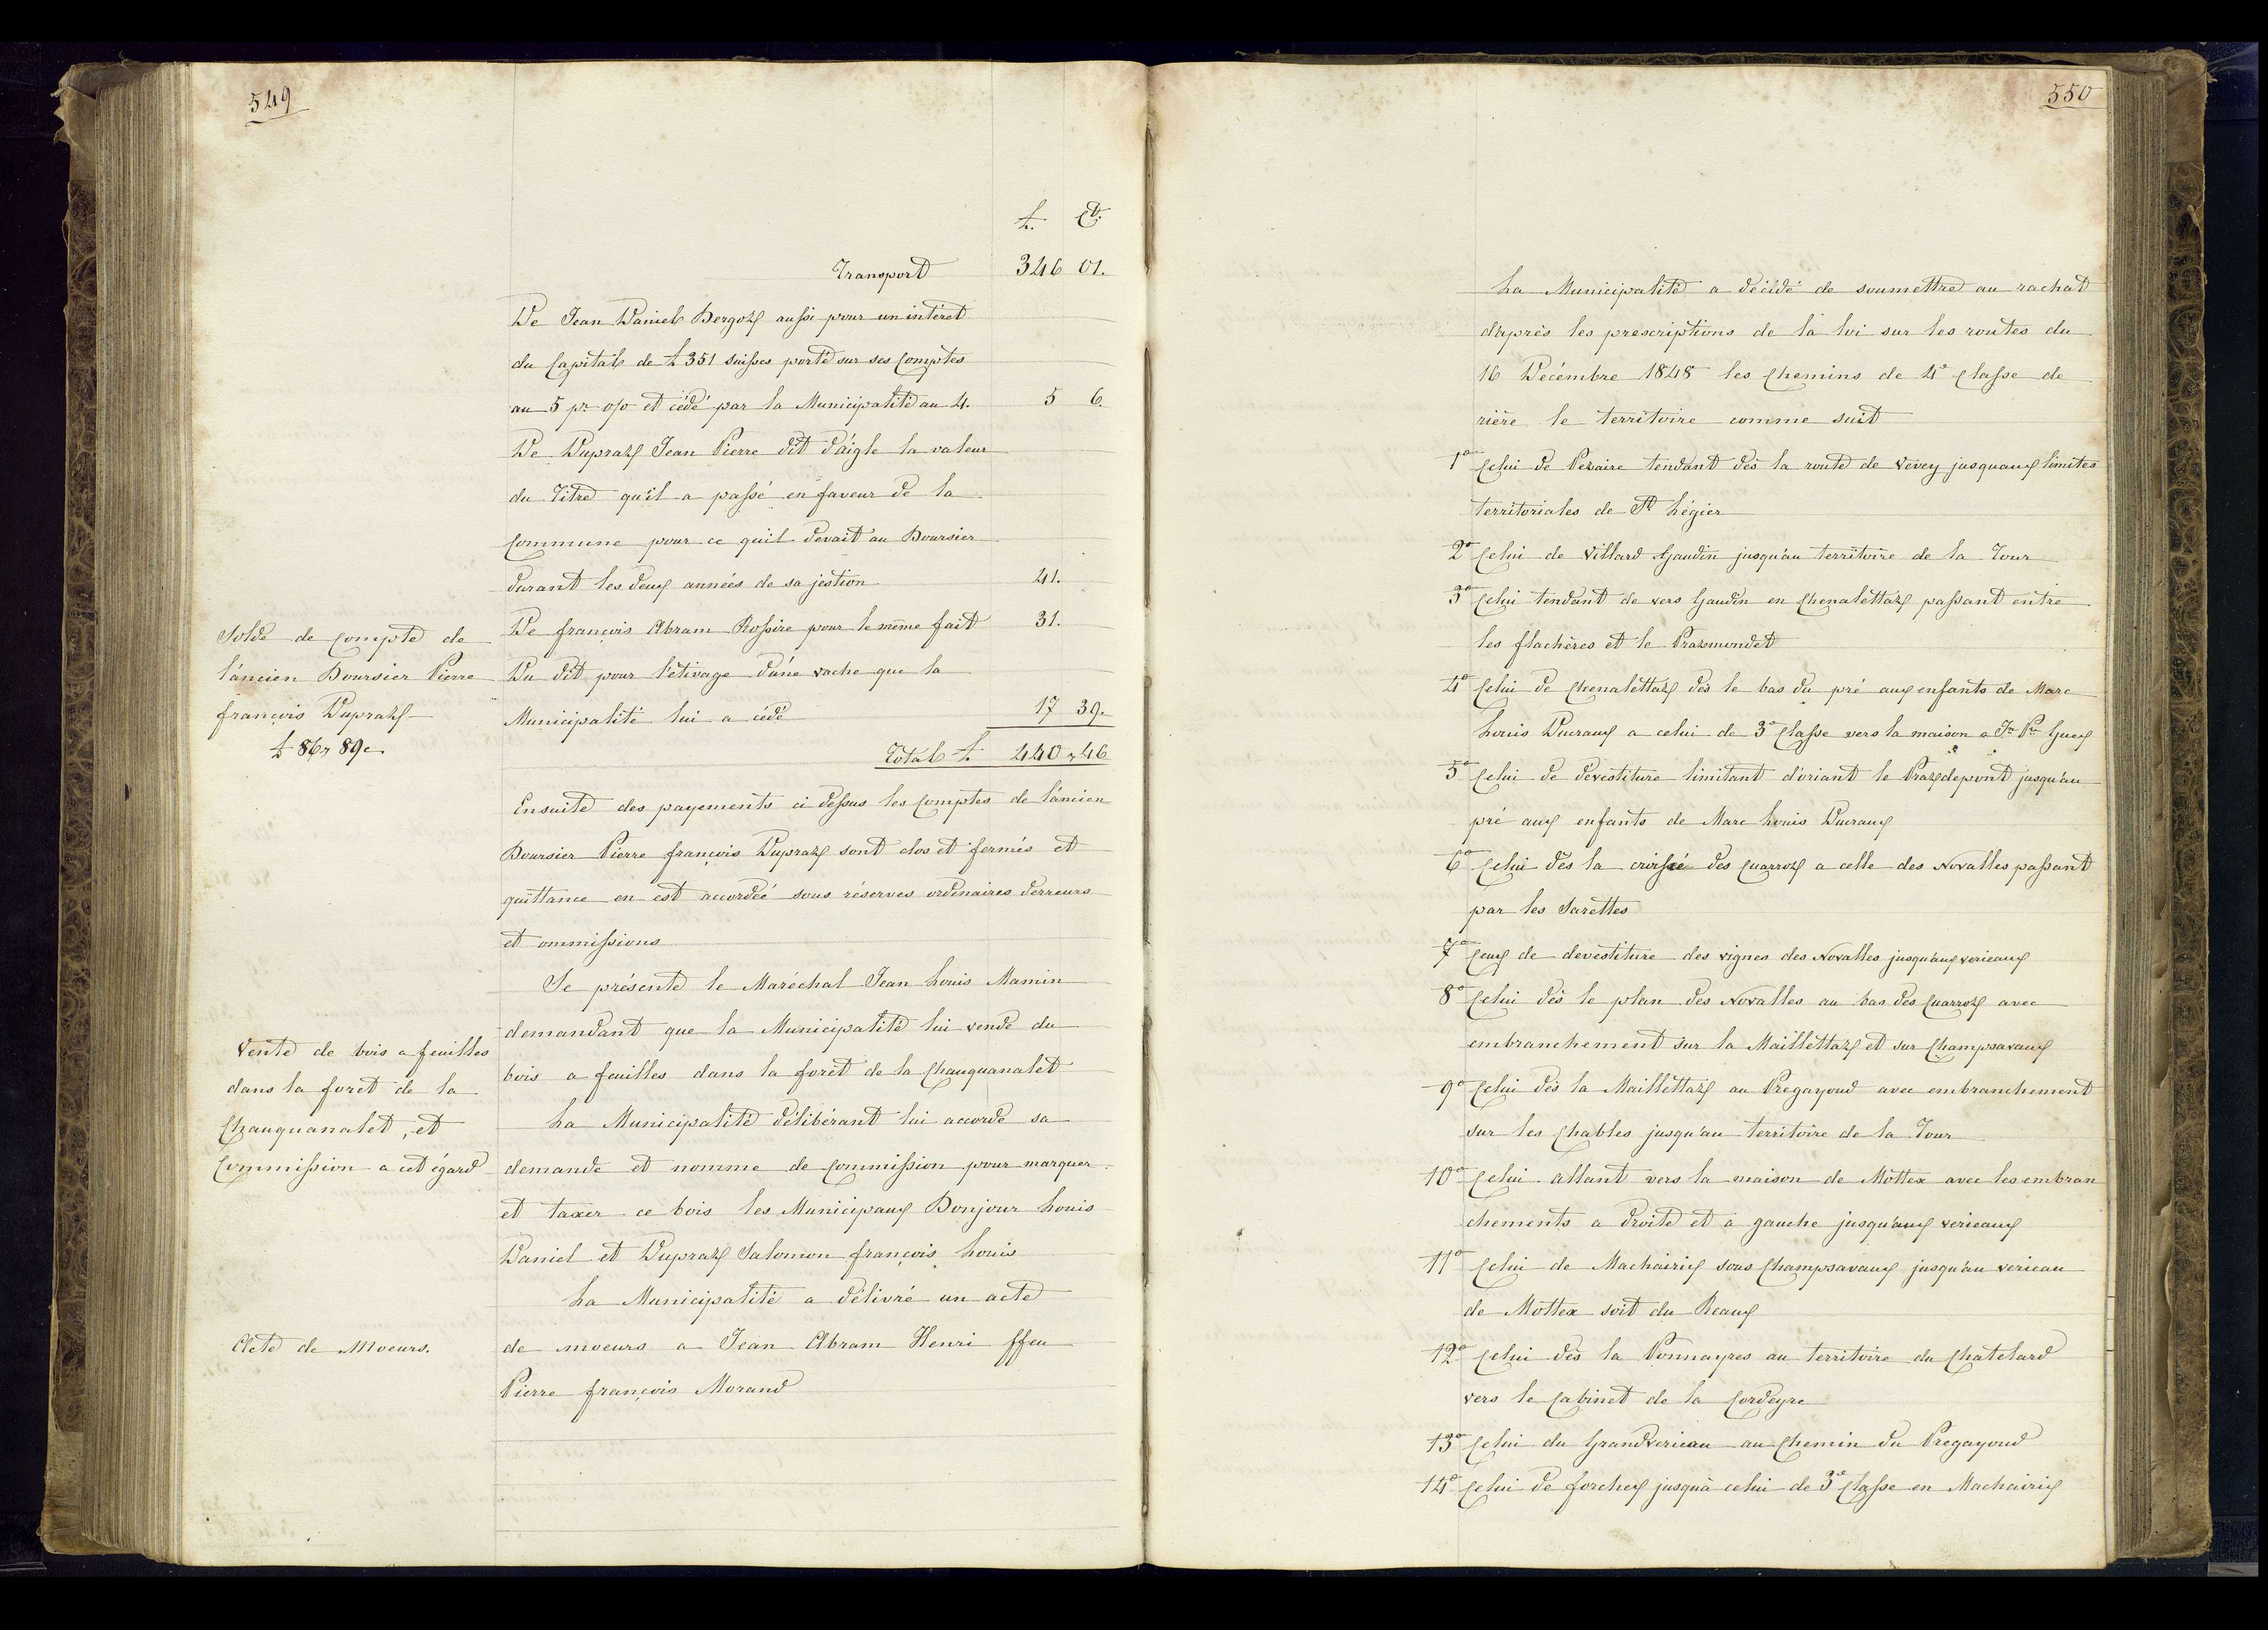 549
£. Ct.
Transport 346 01.
De Jean Daniel Bergoz aussi pour un intéret
du Capital de £ 351 suisses porté sur ses Comptes
au 5 pr o/o et cédé par la Municipalité au 4. 5 6.
De Dupraz Jean Pierre dit d'aigle la valeur
du Titre qu'il a passé en faveur de la
Commune pour ce quil devait au Boursier
durant les deux années de sa jestion 41.
De françois Abram Rossire pour le même fait 31.
Du dit pour l'étivage d'une vache que la
Municipalité lui a cédé 17 39.
Total £ 440 " 46
Solde de Compte de
l'ancien Boursier Pierre
françois Dupraz
£ 86 " 89 c
Ensuite des payements ci dessus les Comptes de l'ancien
Boursier Pierre françois Dupraz sont clos et fermés et
quittance en est accordée sous réserves ordinaires derreurs
et ommissions
Se présente le Maréchal Jean Louis Mamin
demandant que la Municipalité lui vende du
bois a feuilles dans la forêt de la Chauquanalet
La Municipalité délibérant lui accorde sa
demande et nomme de Commission pour marquer
et taxer ce bois les Municipaux Bonjour Louis
Daniel et Dupraz Salomon françois Louis
Vente de bois a feuilles
dans la foret de la
Chauquanalet, et
Commission a cet égard
La Municipalité a délivré un acte
de moeurs a Jean Abram Henri ffeu
Pierre françois Morand
Acte de Moeurs.
550
La Municipalité a décidé de soumettre au rachat
d'aprés les prescriptions de la loi sur les routes du
16 Décembre 1848 les Chemins de 4e Classe de
rière le territoire comme suit
1o Celui de Peraire tendant dès la route de Vevey jusquaux limites
territoriales de St Légier
2o Celui de Villard Gaudin jusqu'au territoire de la Tour
3o Celui tendant de vers Gaudin en Chenalettaz passant entre
les flachères et le Prazmondet
4o Celui de Chenalettaz dès le bas du pré aux enfants de Marc
Louis Ducraux a celui de 3e Classe vers la maison a Jn Pre Guex
5o Celui de devestiture limitant d'oriant le Prazdepont jusqu'au
pré aux enfants de Marc Louis Ducraux
6o Celui dès la croisée des Cuarroz a celle des Novalles passant
par les Sarettes
7o Ceux de devestiture des vignes des Novalles jusqu'aux verieaux
8o Celui dès le plan des Novalles au bas des Cuarroz avec
embranchement sur la Maillettaz et sur Champsavaux
9o Celui dès la Maillettaz au Pregayoud avec embranchement
sur les Chables jusqu'au territoire de la Tour
10o Celui allant vers la maison de Mottex avec les embran
chements a droite et a gauche jusqu'aux verieaux
11o Celui de Machairix sous Champsavaux jusqu'au verieau
de Mottex soit du Reaux
12o Celui dès la Ponnayres au territoire du Chatelard
vers le Cabinet de la Cordeyre
13o Celui du Grandverieau au Chemin du Pregayoud
14o Celui de forchex jusquà celui de 3e Classe en Machairix